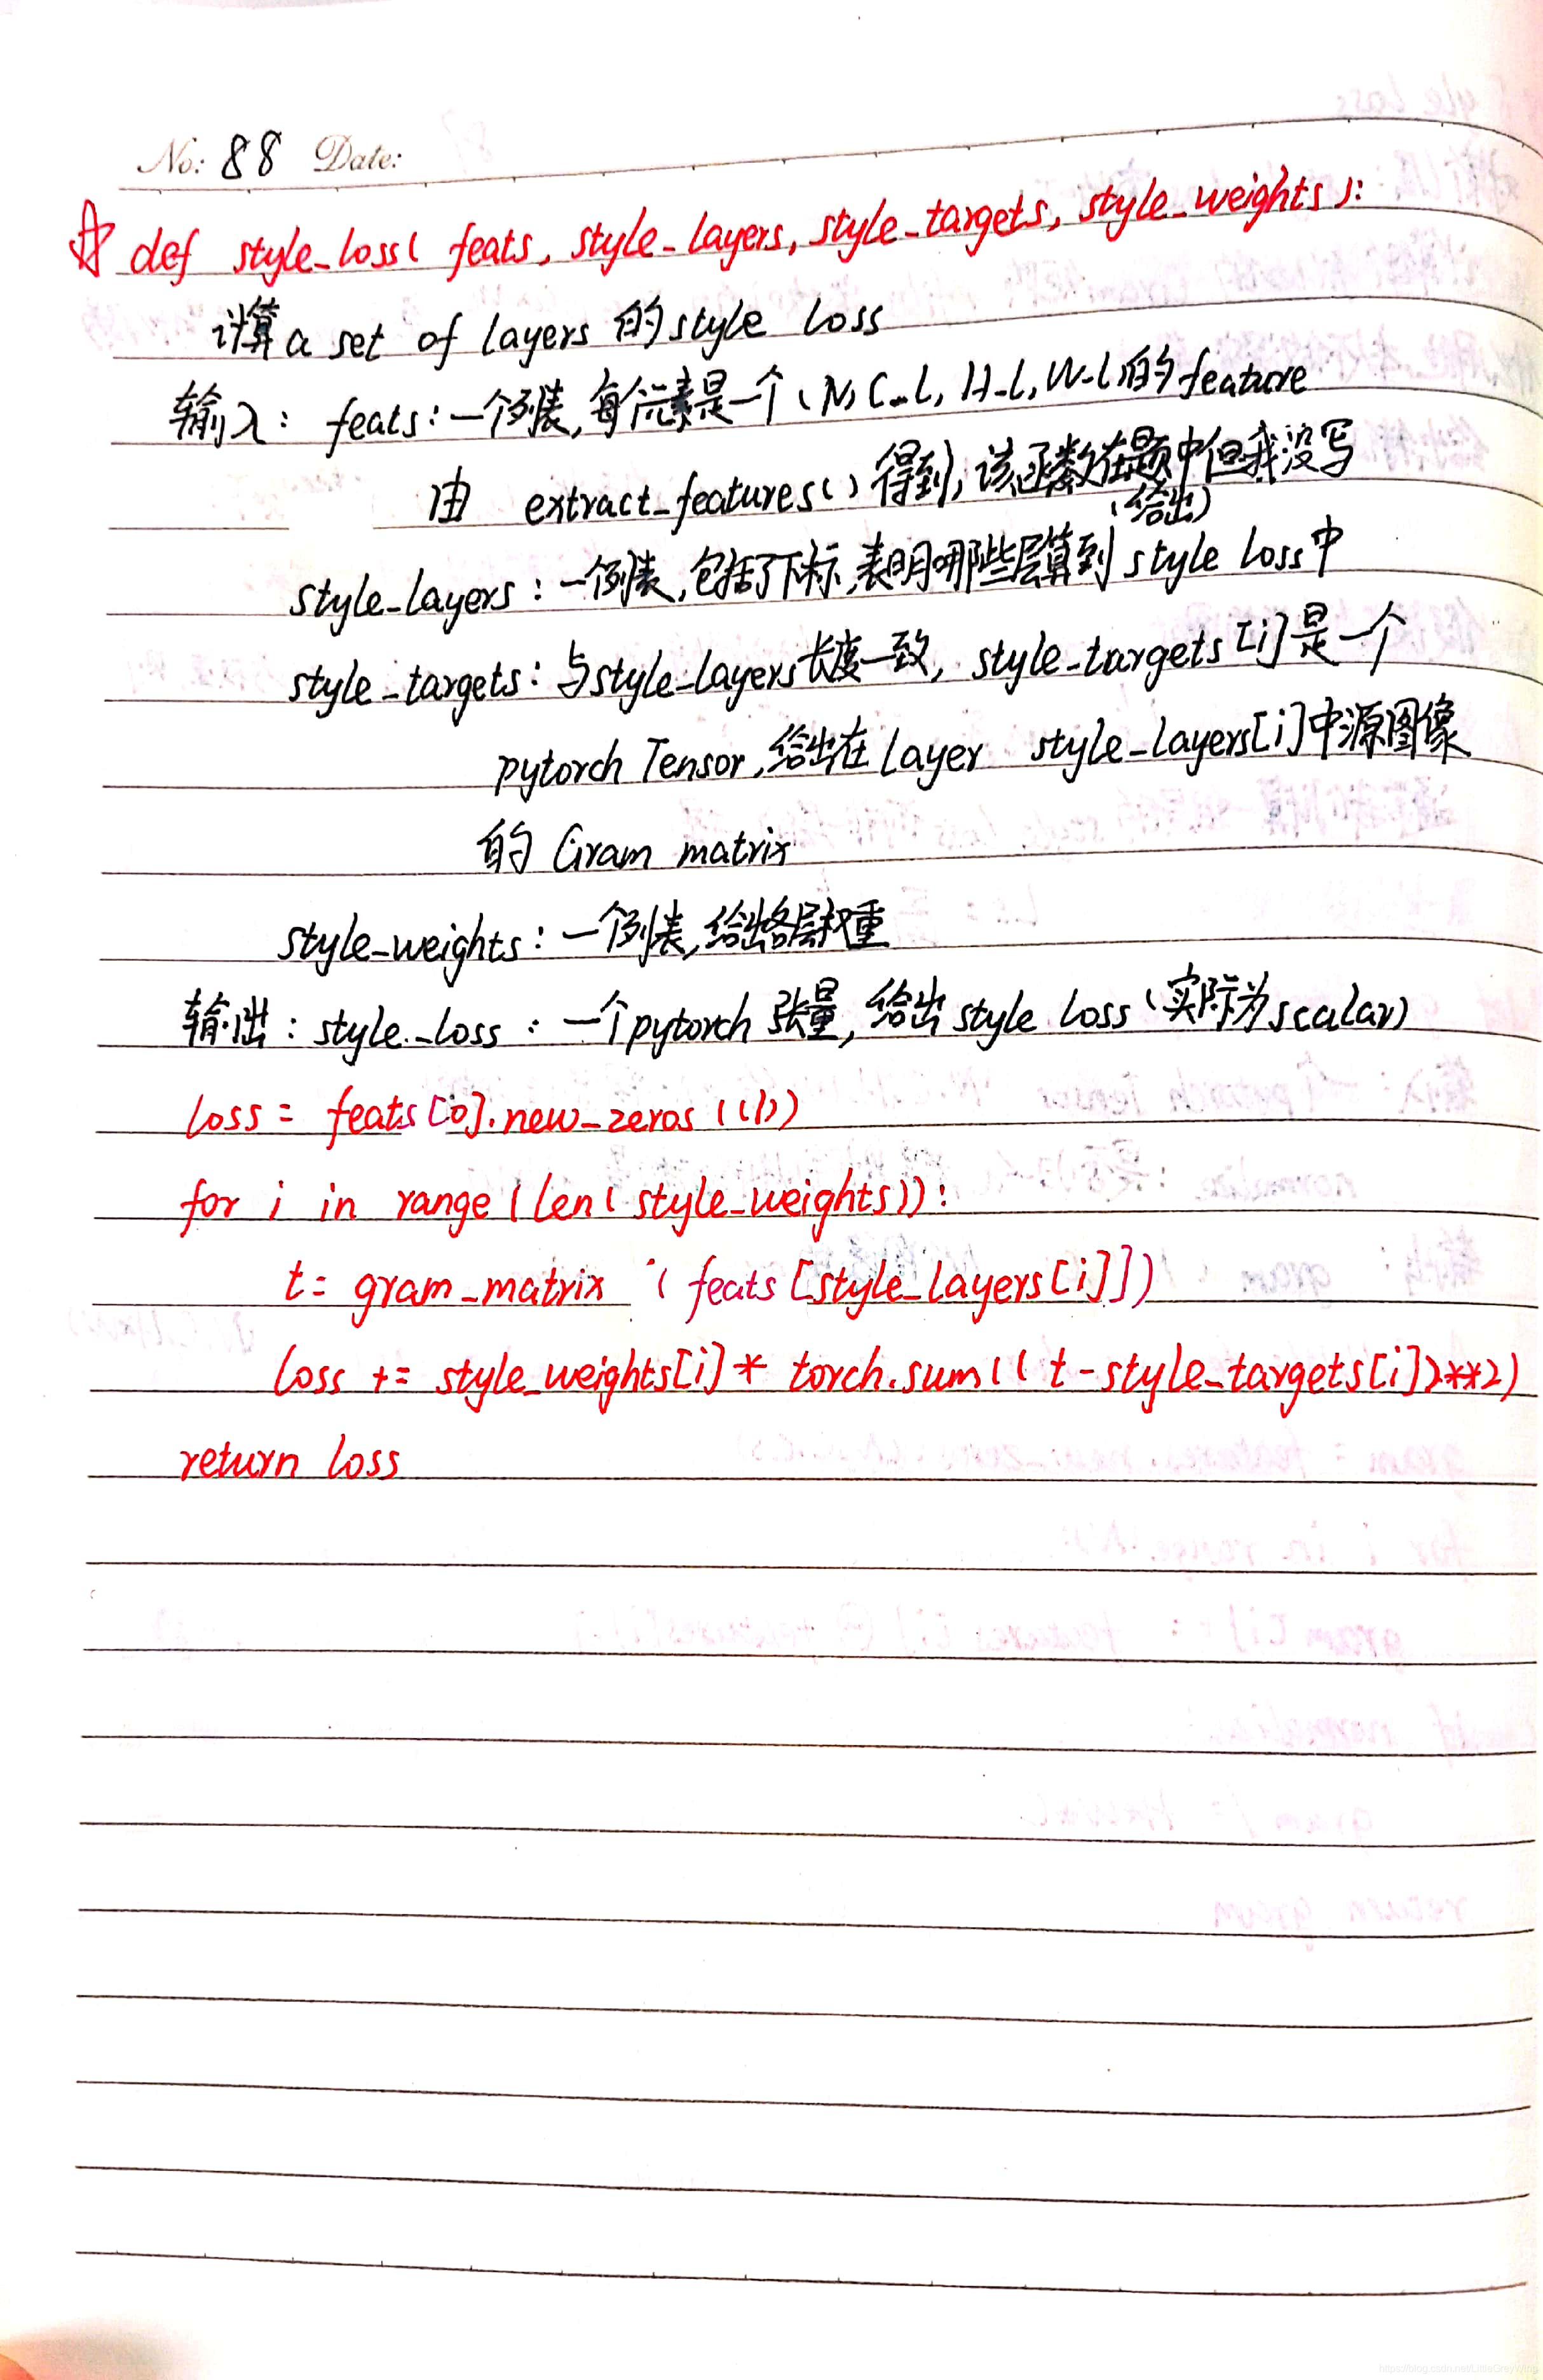 No: 88 Date:
☆ def style_loss( feats, style_layers, style_targets, style_weights ):
计算a set of layers 的style loss
输入: feats:一个列表,每个元素是一个(N, C_l, H_l, W_l)的feature
由 extract_features()得到,该函数在题中但我没写
(给出)
style_layers:一个列表,包括了下标,表明哪些层算到 style loss中
style_targets:与style_layers长度一致, style_targets[i]是一个
pytorch Tensor,给出在 layer style_layers[i]中源图像
的 Gram matrix
style_weights:一个列表,给出各层权重
输出: style_loss : 一个pytorch 张量, 给出 style loss (实际为scalar)
loss = feats[0].new_zeros((1))
for i in range(len( style_weights)):
t= gram_matrix ( feats[style_layers[i]])
loss += style_weights[i] * torch.sum(( t-style_targets[i])**2)
return loss